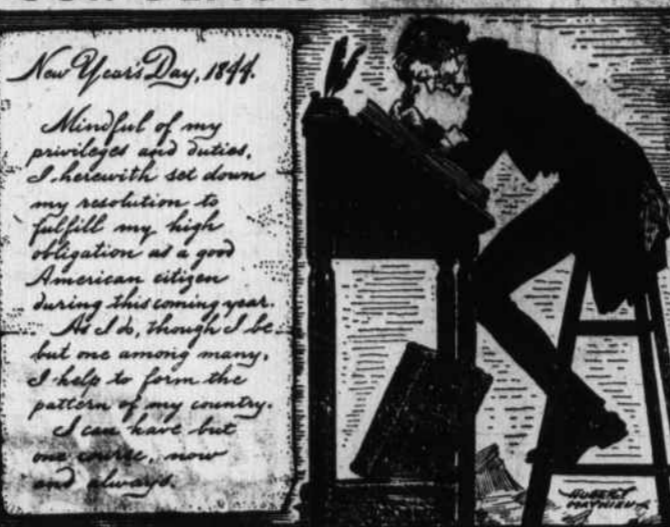 New Year's Day, 1844.
Mindful of my
privileges and duties,
I herewith set down
my resolution to
fulfill my high
obligation as a good
American citizen
during this coming year.
As I do, though I be
but one among many,
I help to form the
pattern of my country.
I can have but
one course, now
and always.
HUBERT
MATHIEU